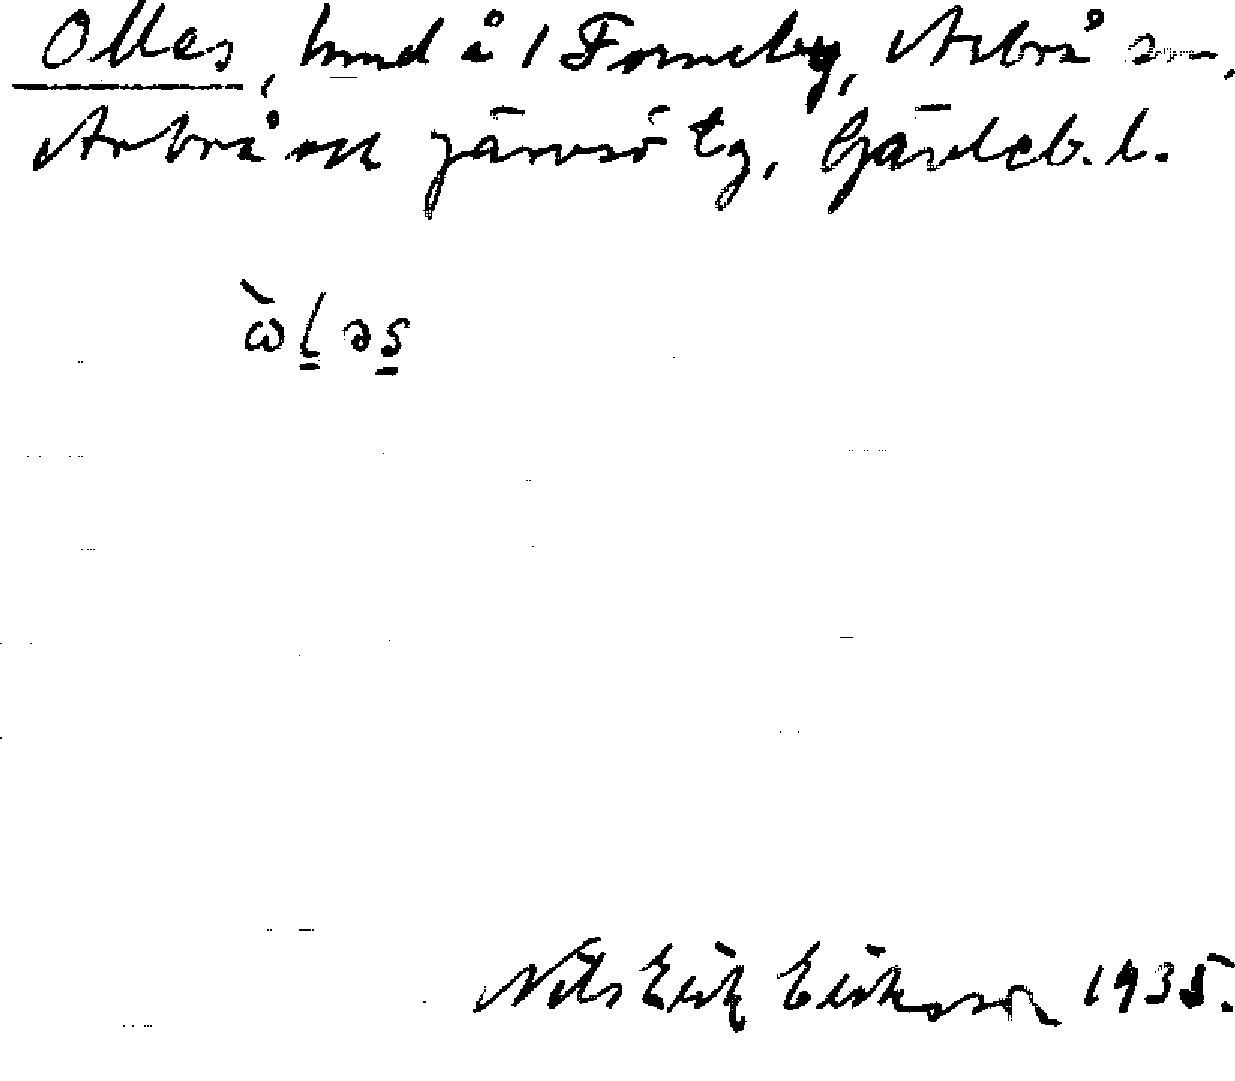 Olles, hmd å 1 Forneby, Arbrå sn.
Arbrå och Järvsö tg, Gävleb. l.
ὼl̠əs̠
Nils Erik Eriksson 1935.